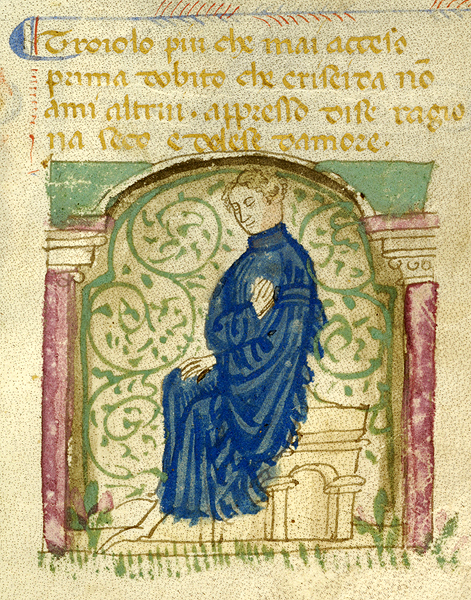 Troiolo piu che mai acceso
prima dobito che criseida nō
ami altrui . appresso dise ragio
na seco e dolese damore .